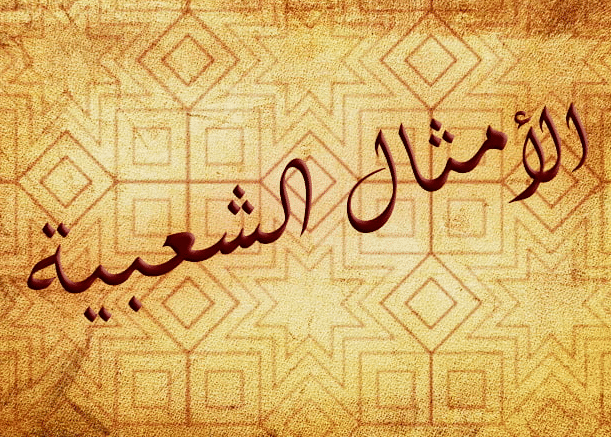 الأمثال الشعبية